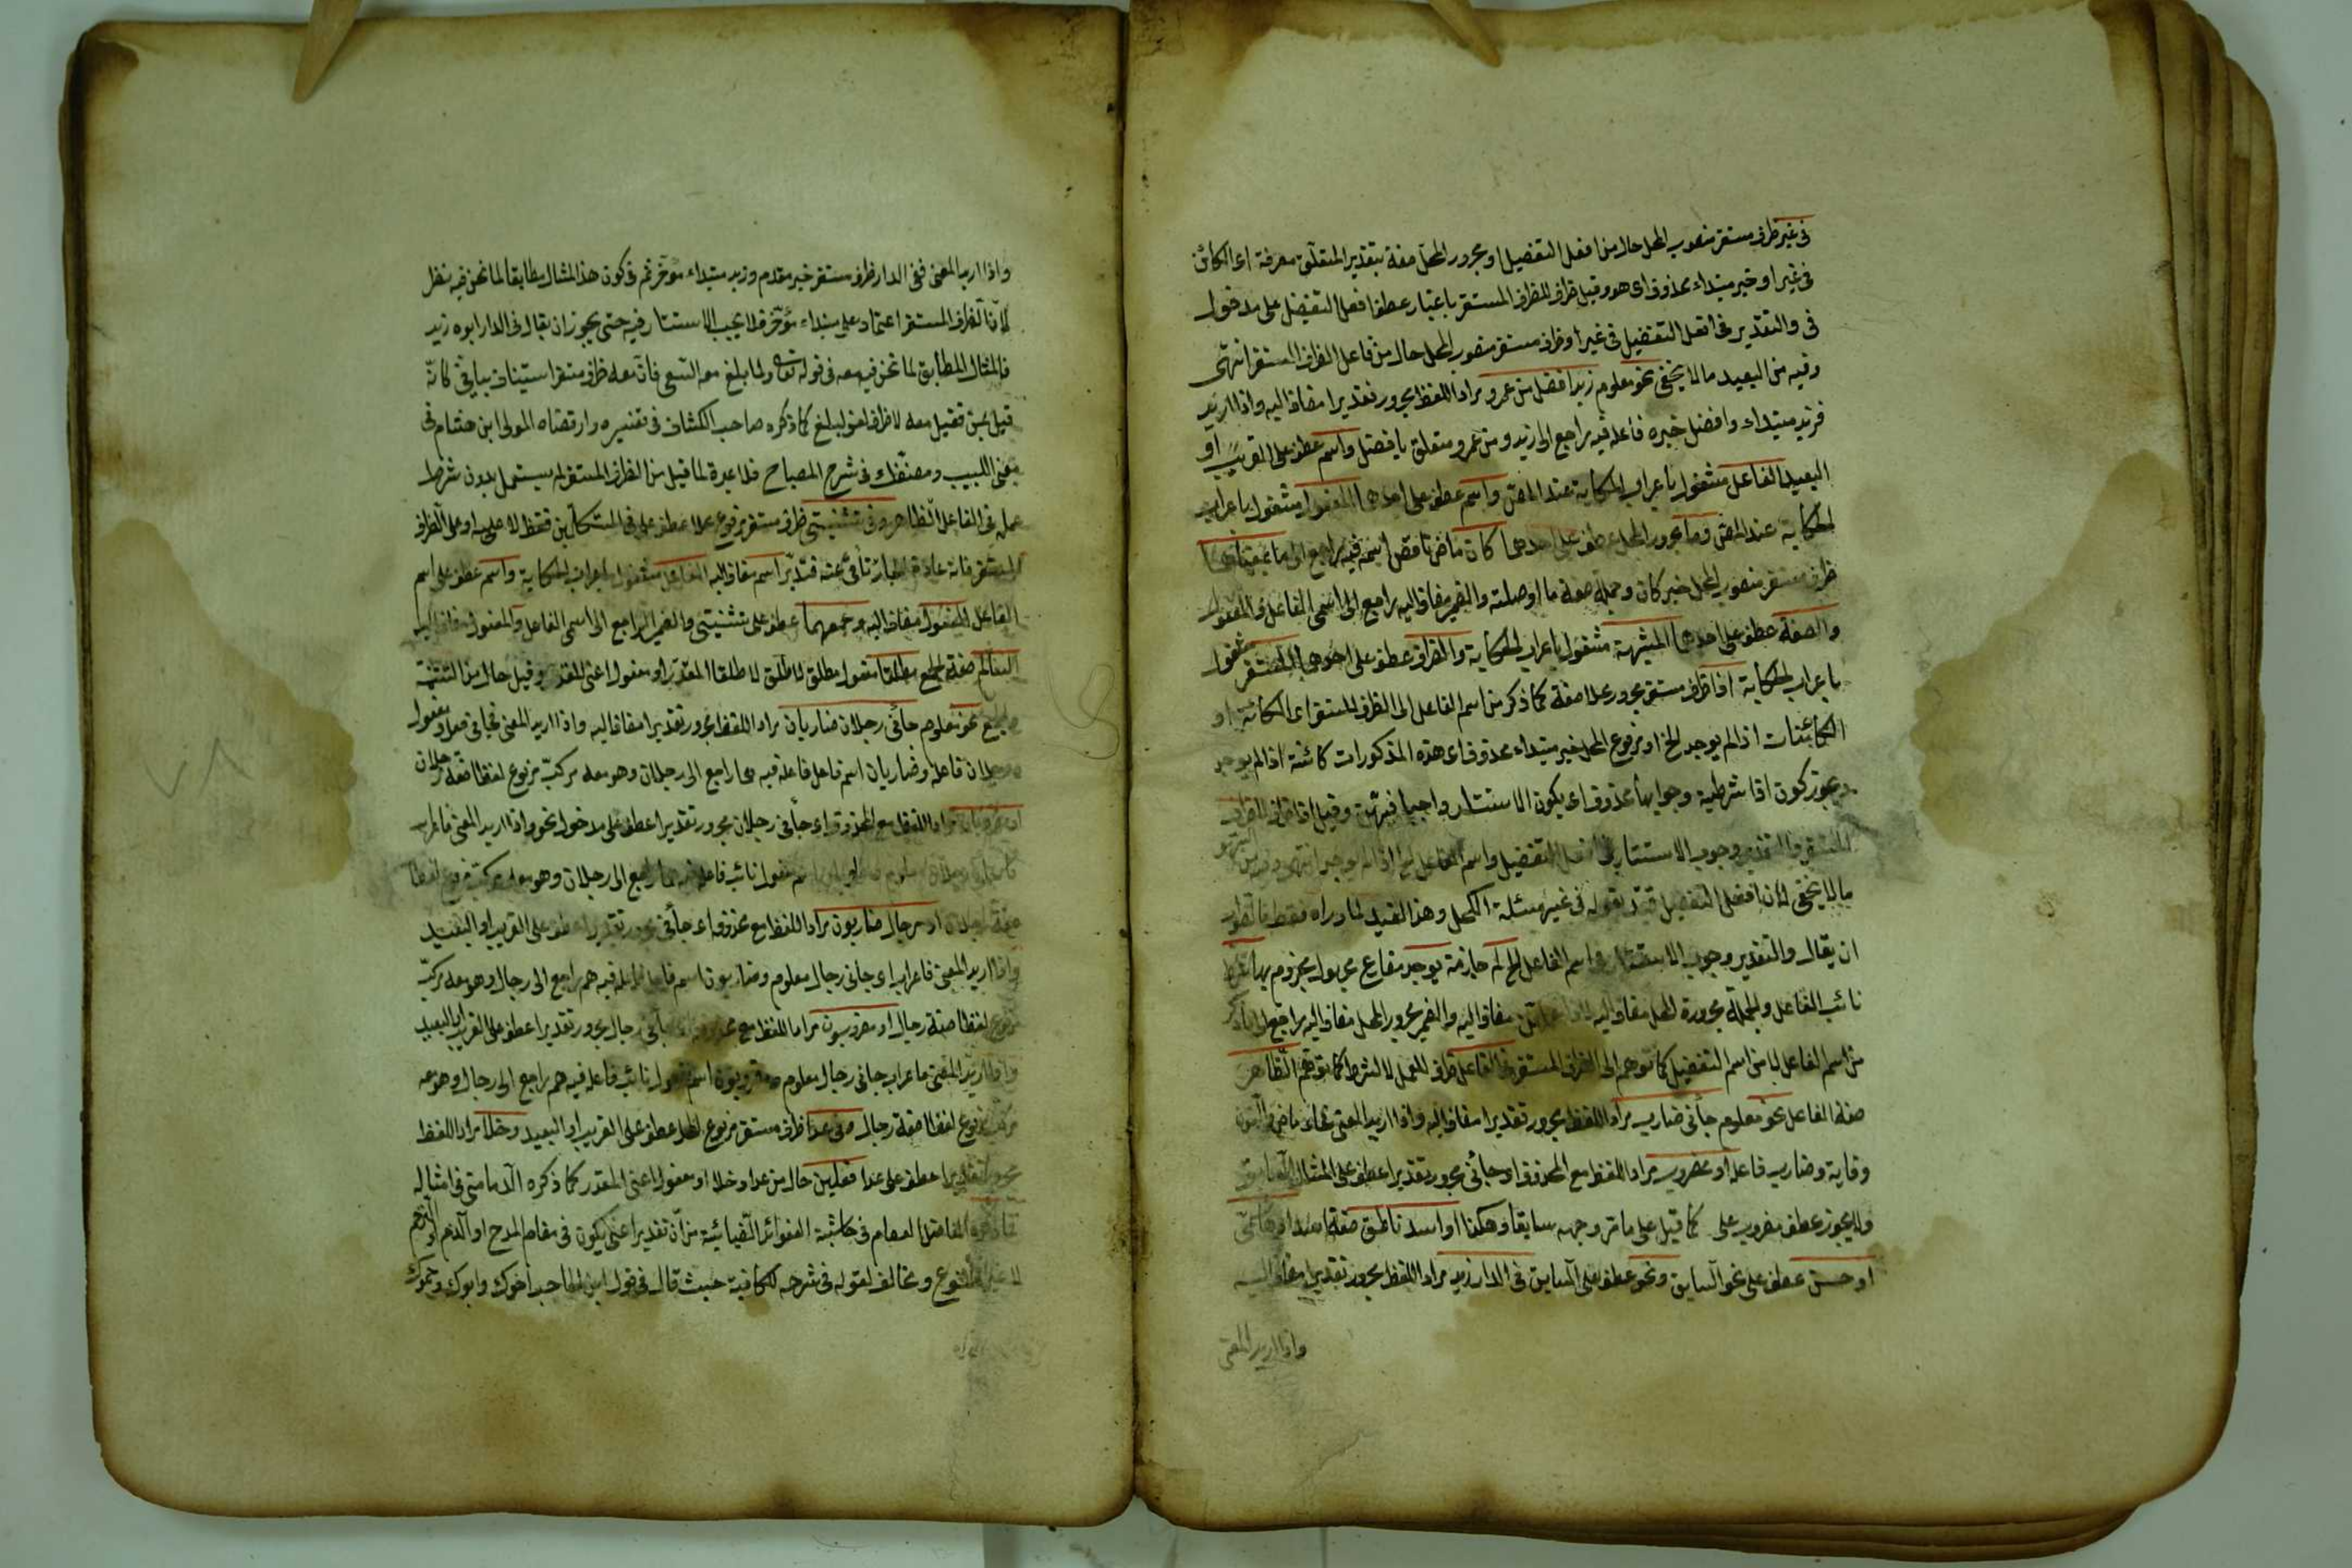 فى غير ظرف مستقر منصوب المحل حال من افعل التفضيل او مجرور المحل صفة بتقدير المتعلق معرفة اى الكائن
فى غير او خبر مبتداء محذوف اى هو وقيل ظرف للظرف المستقر باعتبار عطف افعل التفضيل على مدخول
فى والتقدير فى افعل التفضيل فى غير او ظرف مستقر منصوب المحل حال من فاعل الظرف المستقر انتهى
وفيه من البعيد ما لا يخفى نحو معلوم زيد افضل من عمرو مراد اللفظ مجرور تقديرا مضاف اليه واذا اريد
فزيد مبتداء وافضل خبره فاعله فيه راجع الى زيد ومن عمرو متعلق بافضل واسم عطف على القريب او
البعيد الفاعل مشغول باعراب الحكاية عند المص واسم عطف على احدهما المفعول مشغول باعراب
الحكاية عند المص وما مجرور المحل عطف على احدهما كان ماض ناقص اسمه فيه راجع الى ما
ظرف مستقر منصوب المحل خبر كان وجملة صفة ما او صلته والضمير مضاف اليه راجع الى اسمى الفاعل والمفعول
والصفة عطف على احدهما المشبهة مشغول باعراب الحكاية والظرف عطف على احدهما المستقر مشغول
باعراب الحكاية اذا ظرف مستقر مجرور محلا صفة كما ذكر من اسم الفاعل الى الظرف المستقر اى الكائنة او
الكائنات اذا لم يوجد الخ او مرفوع المحل خبر مبتداء محذوف اى هذه المذكورات كائنة اذا لم يوجد
ويجوز كون اذا شرطية وجوابها محذوف اى يكون الاستتار واجبا فيهن وقيل اذا ظرف للظرف
المستقر والتقدير وجوب الاستتار فى افعل التفضيل واسم الفاعل الخ اذا لم يوجد انتهى وفيه
ما لا يخفى لان افعل التفضيل قيد بقوله فى غير مسئلة الكحل وهذا القيد لما وراه فقط فالظاهر
ان يقال والتقدير وجوب الاستتار فى اسم الفاعل الخ لم جازمة يوجد مضارع مجهول مجزوم بها
نائب الفاعل والجملة مجرورة المحل مضاف اليه لاذا مضاف اليه والضمير مجرور المحل مضاف اليه راجع الى ما ذكر
من اسم الفاعل لا من اسم التفضيل كما توهم الى الظرف المستقر فى الفاعل ظرف للعمل لا للشرط كما توهم الظاهر
صفة الفاعل نحو معلوم جائنى ضارب مراد اللفظ مجرور تقديرا مضاف اليه واذا اريد المعنى فجاء ماض والنون
وقاية وضارب فاعله او مضروب مراد اللفظ مع المحذوف او جائنى مجرور تقديرا عطف على المثال السابق
ولا يجوز عطف مضروب على كما قيل على ما مر وجهه سابقا وهكذا او اسد ناطق صفة اسد او هاشمى
او حسن عطف على نحو السابق ونحو عطف على السابق فى الدار زيد مراد اللفظ مجرور تقديرا مضاف اليه
واذا اريد المعنى
واذا اريد المعنى ففى الدار ظرف مستقر خبر مقدم وزيد مبتداء مؤخر ثم فى كون هذا المثال مطابقا لما نحن فيه نظر
لان الظرف المستقر اعتماد على مبتداء مؤخر فلا يجب الاستتار فيه حتى يجوز ان يقال فى الدار ابوه زيد
فالمثال المطابق لما نحن فيه معه فى قوله تعالى ولما بلغ معه السعى فان معه ظرف مستقر استيناف بيانى كانه
قيل بمن فقيل معه لا ظرف لغو لبلغ كما ذكره صاحب الكشاف فى تفسيره وارتضاه المولى ابن هشام فى
مغنى اللبيب ومصنفك فى شرح المصباح فلا عبرة لما قيل من الظرف المستقر لم يستعمل بدون شرط
عمله فى الفاعل الظاهر وفى تثنيتى ظرف مستقر مرفوع محلا عطف على فى المتكلمين فقط لا عليه او على الظرف
المستقر فانه عبارة عنه فتدبر اسم مضاف اليه الفاعل مشغول باعراب الحكاية واسم عطف على اسم
الفاعل المفعول مضاف اليه وجمعهما عطف على تثنيتى والضمير الراجع الى اسمى الفاعل والمفعول مضاف اليه
السالم صفة الجمع مطلقا مفعول مطلق لاطلق لا طلقا المقدر او مفعول اعنى المقدر وقيل حال من التثنية
والجمع نحو معلوم جائنى رجلان ضاربان مراد اللفظ مجرور تقديرا مضاف اليه واذا اريد المعنى فجائى فعل ومفعول
ورجلان فاعله وضاربان اسم فاعل فاعله فيه هما راجع الى رجلان وهو معه مركب مرفوع لفظا صفة رجلان
او مضروبان مراد اللفظ مع المحذوف اى جائنى رجلان مجرور تقديرا عطف على مدخول نحو واذا اريد المعنى فاعراب
جائنى رجلان معلوم ومضروبان اسم مفعول نائب فاعله فيه هما راجع الى رجلان وهو معه مركب مرفوع لفظا
صفة رجلان او رجال ضاربون مراد اللفظ مع محذوف اى جائنى مجرور تقديرا عطف على القريب او البعيد
واذا اريد المعنى فاعراب اى جائنى رجال معلوم وضاربون اسم فاعل فاعله فيه هم راجع الى رجال وهو معه مركب
مرفوع لفظا صفة رجال او مضروبون مراد اللفظ مع محذوف اى جائنى رجال مجرور تقديرا عطف على القريب او البعيد
واذا اريد المعنى فاعراب جائنى رجال معلوم ومضروبون اسم مفعول نائب فاعله فيه هم راجع الى رجال وهو معه
مركب مرفوع لفظا صفة رجال وفى عدا ظرف مستقر مرفوع المحل عطف على القريب او البعيد وخلا مراد اللفظ
مجرور تقديرا عطف على عدا فعلين حال من عدا وخلا او مفعول اعنى المقدر كما ذكره الدمامينى فى امثاله
الفاضل العصام فى حاشية الفوائد الضيائية من ان تقدير اعنى يكون فى مقام المدح او الذم او الترحم
ومخالف لقوله فى شرحه للكافية حيث قال فى قول ابن الحاجب اخوك وابوك وحموك